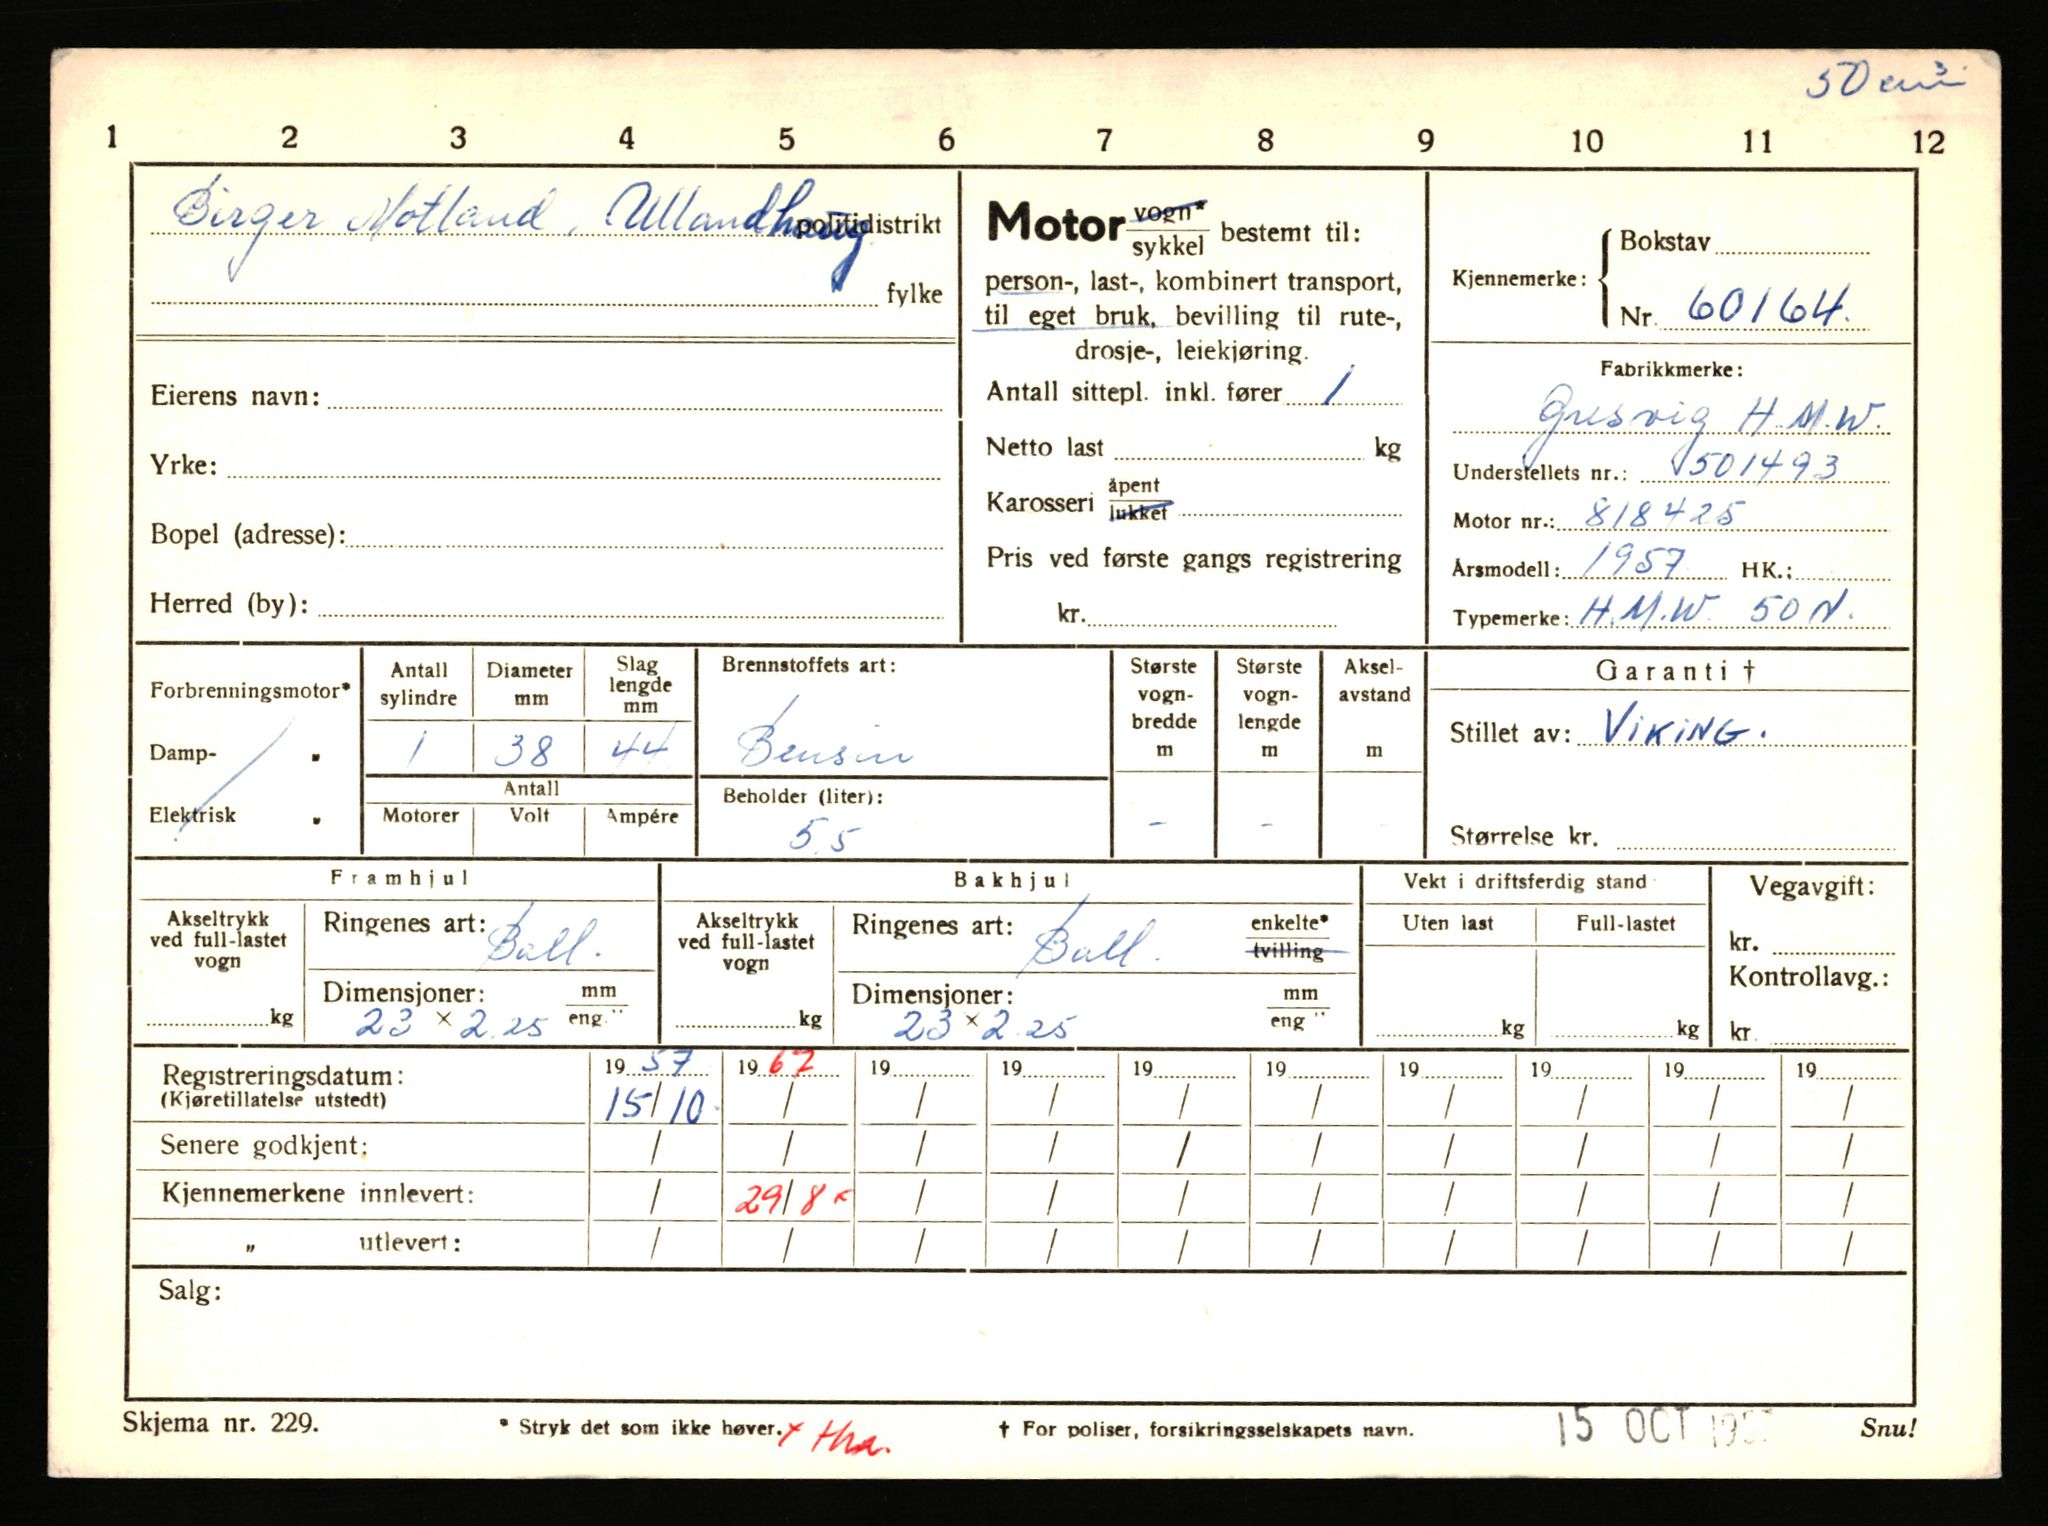 50 cm³
1 2 3 4 5 6 7 8 9 10 11 12
Birger Motland, Ullandhaug politidistrikt
fylke
Eierens navn:
Yrke:
Bopel (adresse):
Herred (by):
Motor vogn* / sykkel bestemt til:
person-, last-, kombinert transport,
til eget bruk, bevilling til rute-,
drosje-, leiekjøring.
Antall sittepl. inkl. fører 1
Netto last kg
Karosseri åpent / lukket
Pris ved første gangs registrering
kr.
Kjennemerke: Bokstav
Nr. 60164.
Fabrikkmerke:
Gresvig H.M.W.
Understellets nr.: 501493
Motor nr.: 818425
Årsmodell: 1957 HK.:
Typemerke: H.M.W. 50 N.
Forbrenningsmotor*
Damp- "
Elektrisk "
Antall sylindre
Diameter mm
Slag lengde mm
1 38 44
Antall
Motorer Volt Ampére
Brennstoffets art:
Bensin
Beholder (liter):
5,5
Største vogn-bredde m
Største vogn-lengde m
Aksel-avstand m
- -
Garanti †
Stillet av: VIKING.
Størrelse kr.
Framhjul
Akseltrykk ved full-lastet vogn
kg
Ringenes art: Ball.
Dimensjoner: mm / eng."
23 x 2.25
Bakhjul
Akseltrykk ved full-lastet vogn
kg
Ringenes art: Ball. enkelte* / tvilling
Dimensjoner: mm / eng"
23 x 2.25
Vekt i driftsferdig stand
Uten last Full-lastet
kg kg
Vegavgift:
kr.
Kontrollavg.:
kr.
Registreringsdatum: 1957 1967 19 19 19 19 19 19 19 19
(Kjøretillatelse utstedt) 15/10 / / / / / / / / /
Senere godkjent: / / / / / / / / / /
Kjennemerkene innlevert: / 29/8 x / / / / / / / /
" utlevert: / / / / / / / / / /
Salg:
Skjema nr. 229. * Stryk det som ikke høver. † For poliser, forsikringsselskapets navn. 15 OCT 195 Snu!